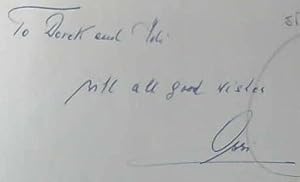 To Derek and
with all good wishes